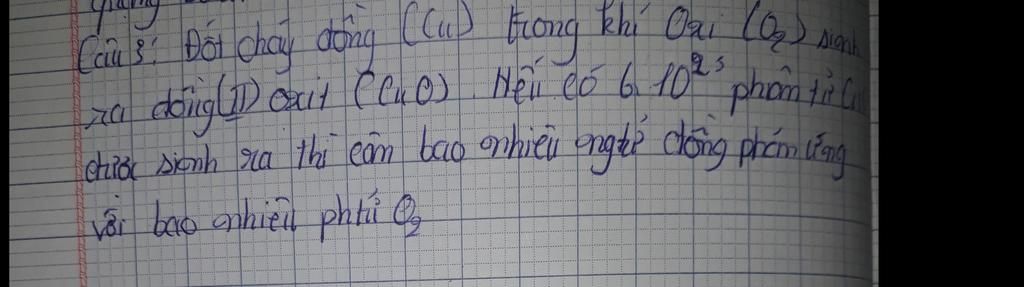 Câu 3: Đốt cháy đồng (Cu) trong khí Oxi (O2) sinh
ra đồng(II) oxit (CuO) Nếu có 6.10^23 phân tử
được sinh ra thì cần bao nhiêu ngtử đồng phản ứng
với bao nhiêu phtử O2